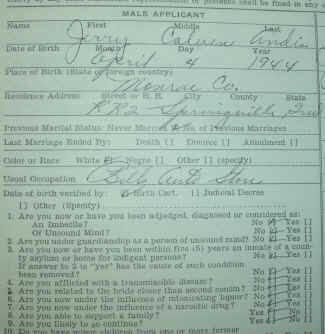 MALE APPLICANT
Name First Middle Last
Jerry
Date of Birth Month Day Year
April 4 1944
Place of Birth (State or foreign country)
Monroe Co.
Residence Address Street or R. R. City County State
R R 2 Springville Ind
Previous Marital Status: Never Married No. of Previous Marriages
Last Marriage Ended By: Death [ ] Divorce [ ] Annulment [ ]
Color or Race White Negro [ ] Other [ ] (specify)
Usual Occupation
Date of birth verified by: Birth Cert. [ ] Judicial Decree
[ ] Other (Specify)
1. Are you now or have you been adjudged, diagnosed or considered as:
An Imbecile? No Yes [ ]
Of Unsound Mind? No Yes [ ]
2. Are you under guardianship as a person of unsound mind? No Yes [ ]
3. Are you now or have you been within five (5) years an inmate of a county asylum or home for indigent persons? No Yes [ ]
If answer to 3 is "yes" has the cause of such condition
been removed? No Yes [ ]
4. Are you afflicted with a transmissible disease? No Yes [ ]
5. Are you related to the bride closer than second cousin? No Yes [ ]
6. Are you now under the influence of intoxicating liquor? No Yes [ ]
7. Are you now under the influence of a narcotic drug? No Yes [ ]
8. Are you able to support a family? Yes No [ ]
9. Are you likely to so continue? Yes No [ ]
10. Do you have minor children from one or more former